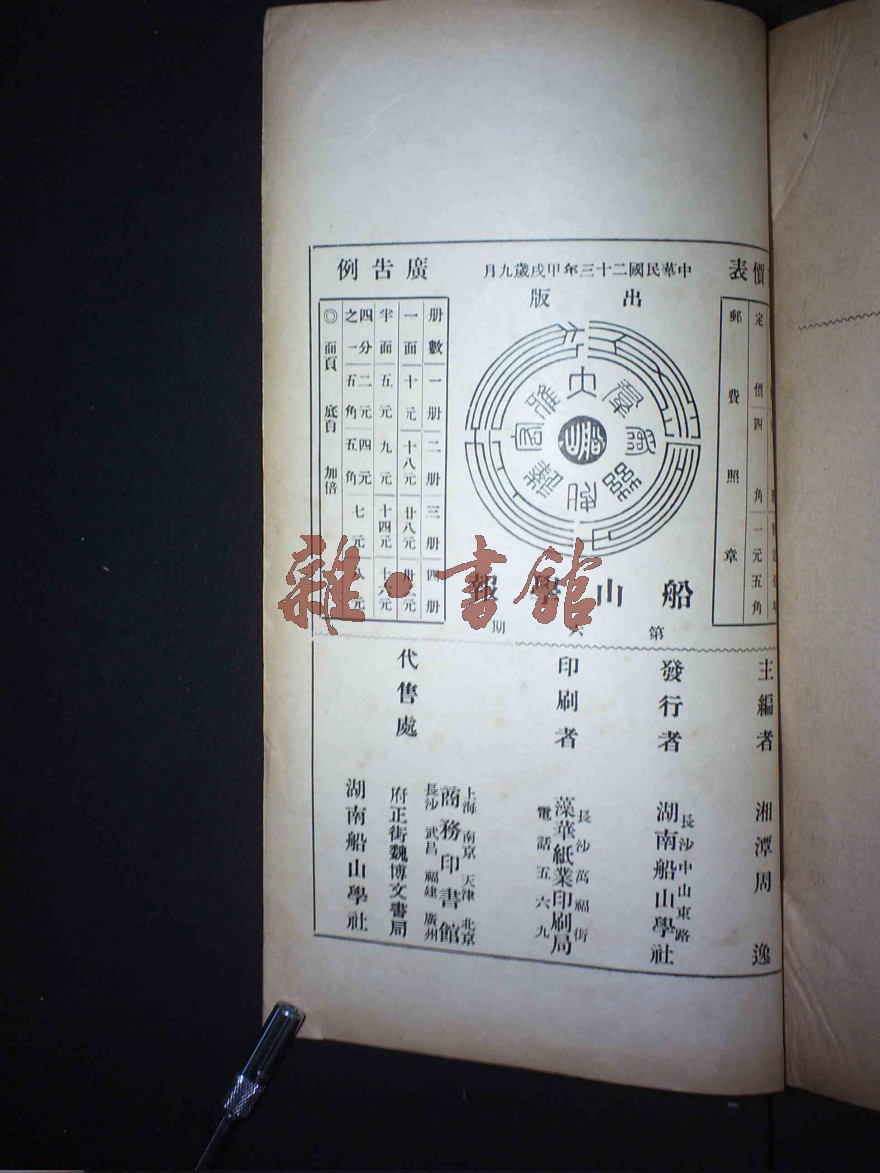 價表
定價四角
一元五角
郵費照章
中華民國二十三年甲戌歲九月
出版
船
船山學報
第 期
廣告例
册數 一册 二册 三册 四册
一面 十元 十八元 廿八元
半面 五元 九元 十四元 十六元
四分之一 二元五角 四元五角 七元 八元
◎面頁 底頁 加倍
主編者 湘潭周逸
發行者 長沙中山東路
湖南船山學社
印刷者 長沙萬福街
藻華紙業印刷局
電話五六九
代售處
上海 南京 天津 北京
商務印書館
長沙 武昌 福建 廣州
府正街魏博文書局
湖南船山學社
雜·書館